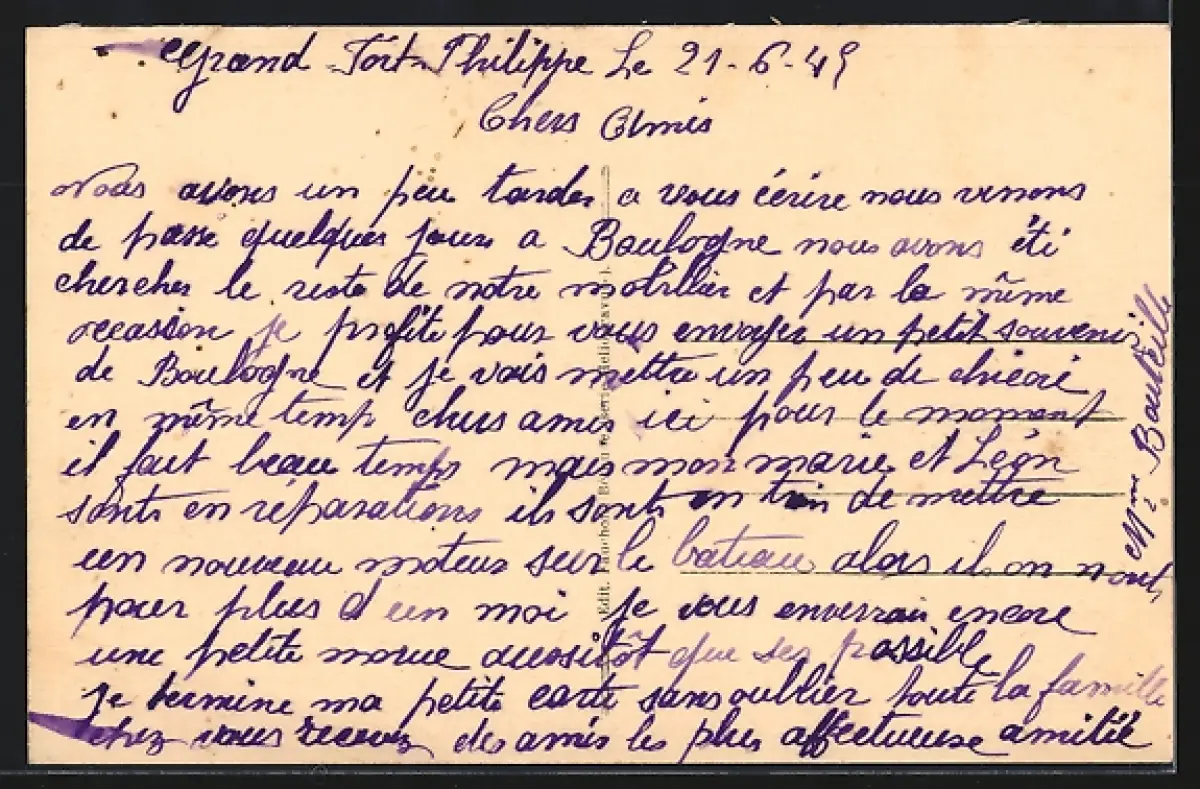 Grand Fort Philippe Le 21-6-49
Chers Amis
Nous avons un peu tarder a vous éérire nous venons
de passé quelques jours a Boulogne nous avons éti
chercher le reste de notre mobilier et par la même
occasion je profite pour vous envoyer un petit souvenir
de Boulogne et je vais mettre un peu de chicoré
en même temp chers amis ici pour le moment
il fait beau temps mais mon marie et Léon
sonts en réparations ils sonts en train de mettre
un nouveau moteur sur le bateau alors il on nonts
pour plus d un moi je vous enverrai encore
une petite morue aussitôt que ses possible
Je termine ma petite carte sans oublier toute la famille
chez vous recevez des amis les plus affectueuse amitié
Mme Bouteille
Edit.